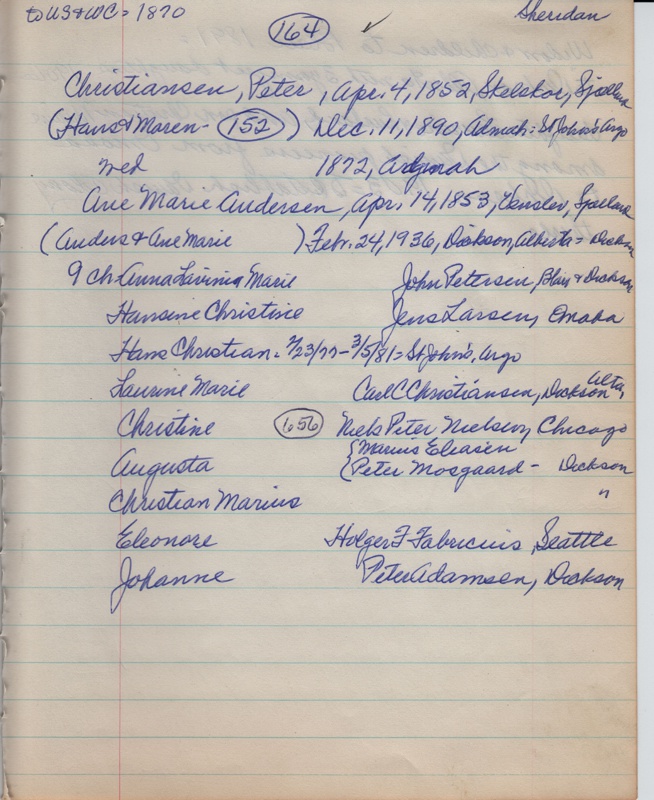 to US & WC = 1870 164 ✓ Sheridan
Christiansen, Peter, Apr. 4, 1852, Skelskor, Sjælland
(Hans & Maren - 152) Dec. 11, 1890, Admah = St John's Argo
wed 1872,
Ane Marie Andersen, Apr. 14, 1853, Venslev, Sjælland
(Anders & Ane Marie) Feb. 24, 1936, Dickson, Alberta = Dickson
9 ch. Anna Lavinia Marie John Petersen, Blair & Dickson
Hansine Christine Jens Larsen, Omaha
Hans Christian = 2/23/77 - 3/5/81 = St John's, Argo
Laurine Marie Carl C Christiansen, Dickson Alta,
Christine 656 Niels Peter Nielsen, Chicago
Augusta { Marius Eleasen
( Peter Mosgaard - Dickson
Christian Marius "
Eleonore Holger F Fabricius, Seattle
Johanne Peter Adamsen, Dickson